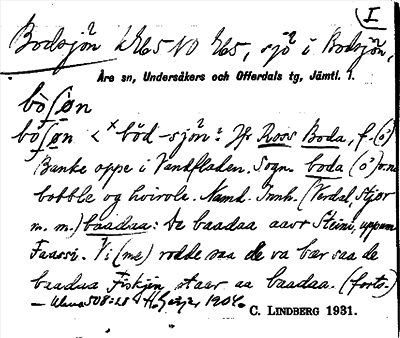 I
Bodsjön 2765 NO 265, sjö i Bodsjön,
Åre sn, Undersåkers och Offerdals tg, Jämtl. l.
bòſøn
bòſøn < *böd-sjön: Jfr Ross Boda, f. (ò)
Banke oppe i Vandfladen. Sogn. boda (ò) v.n.
bobble og hvirvle. Namd. Innh. (Verdal, Stjør
m. m.) baadaa: De baadaa aavr Steini, uppum
Faassi. Vi (me) rodde saa de va bær saa de
baadaa. Fiskjin staar aa baadaa. (forts.)
C. LINDBERG 1931.